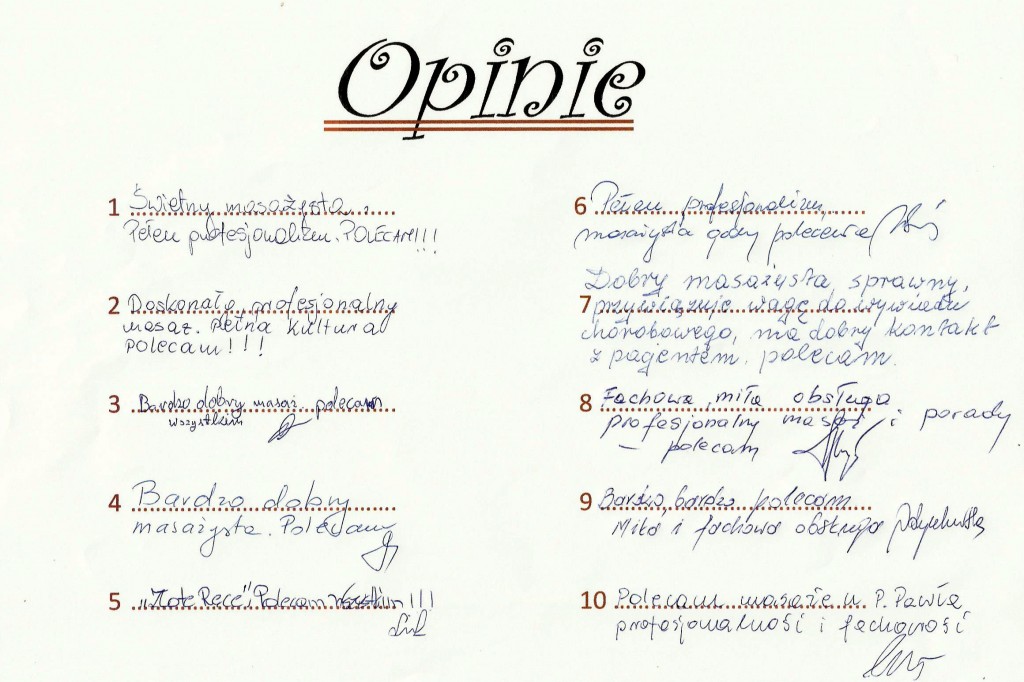 Opinie
1 Świetny masażysta.
Pełen profesjonalizm. POLECAM!!!
2 Doskonały, profesjonalny
masaż. Pełna kultura
polecam!!!
3 Bardzo dobry masaż. polecam
wszystkim
4 Bardzo dobry
masażysta. Polecam
5 "Złote Ręce" Polecam wszystkim!!!
6 Pełen profesjonalizm,
masażysta godny polecenia
Dobry masażysta, sprawny,
7 przywiązuje wagę do wywiadu
chorobowego, ma dobry kontakt
z pacjentem. polecam.
8 Fachowa, miła obsługa
profesjonalny masaż i porady
– polecam
9 Bardzo, bardzo polecam
Miła i fachowa obsługa
10 Polecam masaże u P. Pawła
profesjonalność i fachowość